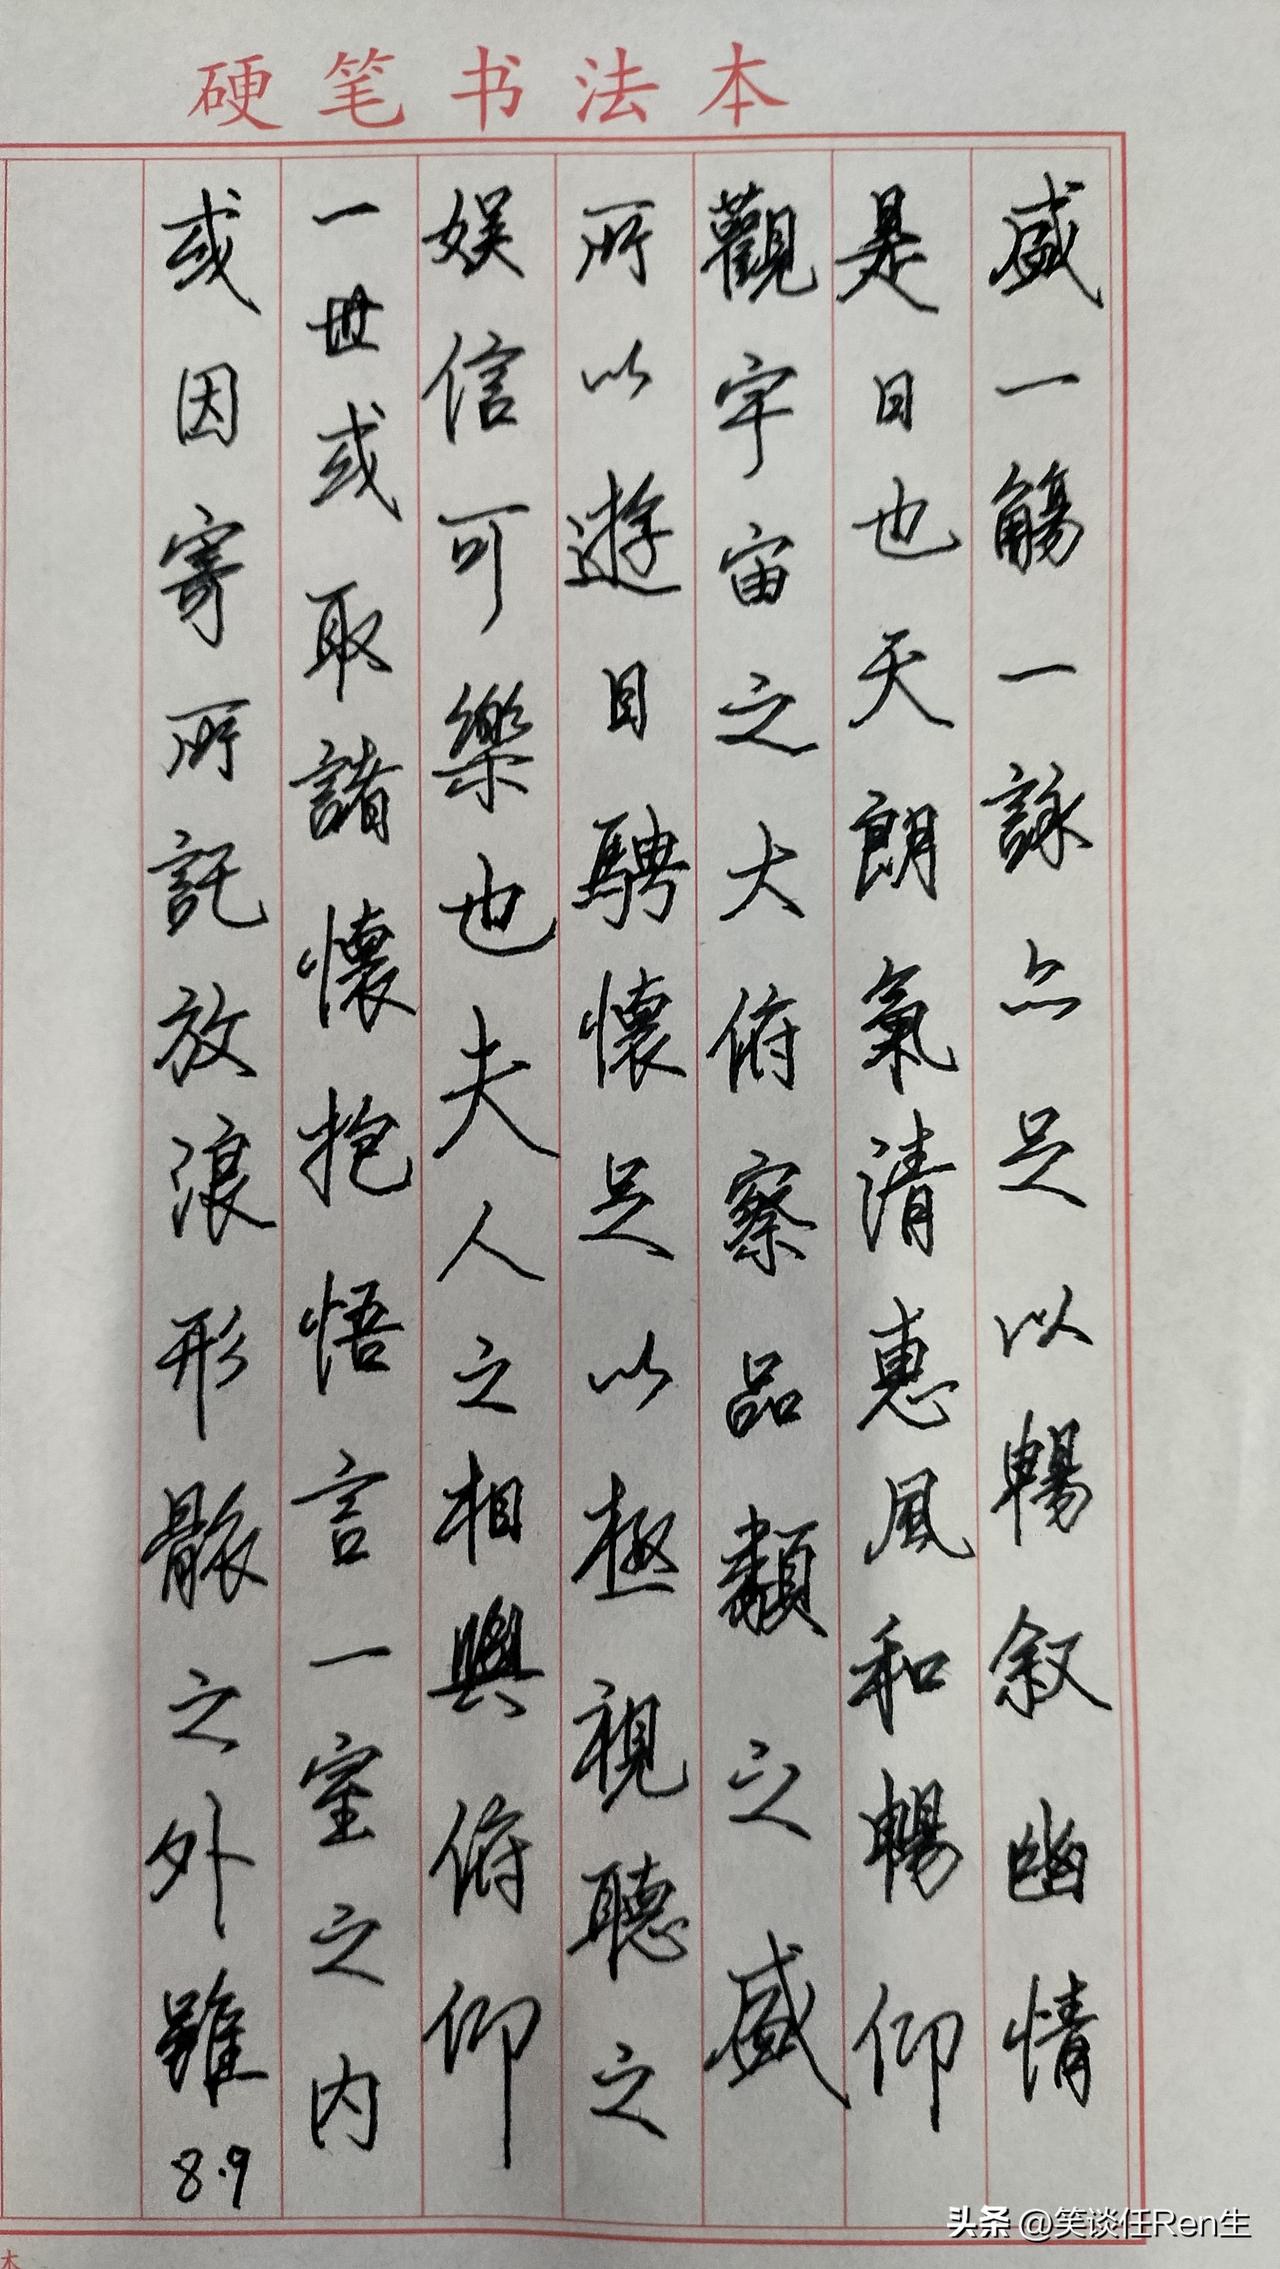 硬笔书法本
盛一觴一詠亦足以暢叙幽情
是日也天朗氣清惠風和暢仰
觀宇宙之大俯察品類之盛
所以遊目騁懷足以極視聽之
娱信可樂也夫人之相與俯仰
一世或取諸懷抱悟言一室之内
或因寄所託放浪形骸之外雖
8.9
头条 @笑谈任Ren生